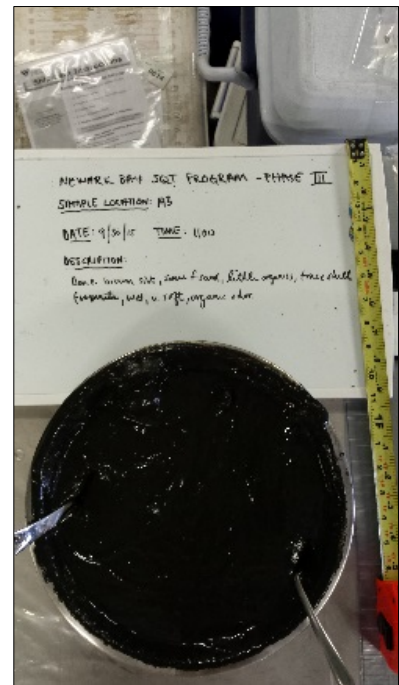 NEWARK BAY SQT PROGRAM - PHASE III
SAMPLE LOCATION:
DATE: 9/30/15 TIME: 1100
DESCRIPTION:
brown silt, some f sand, little organics, trace shell
fragments, wet, v. soft, organic odor